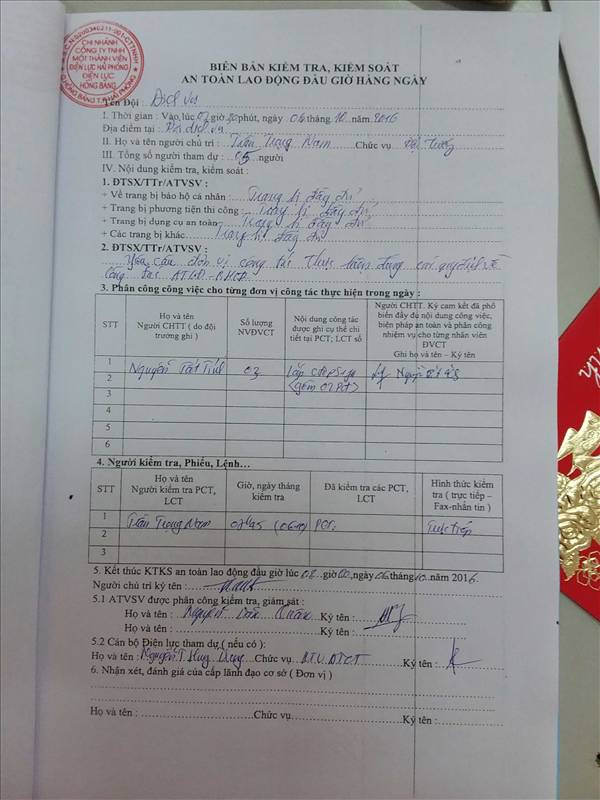 M.S.C.N:0200340211-001-C.T.TNHH
CHI NHÁNH
CÔNG TY TNHH
MỘT THÀNH VIÊN
ĐIỆN LỰC HẢI PHÒNG
ĐIỆN LỰC
HỒNG BÀNG
Q.HỒNG BÀNG T.P HẢI PHÒNG
BIÊN BẢN KIỂM TRA, KIỂM SOÁT
AN TOÀN LAO ĐỘNG ĐẦU GIỜ HÀNG NGÀY
Tên Đội : Dịch vụ
I. Thời gian : Vào lúc 07 giờ 30 phút, ngày 06 tháng 10 năm 2016
Địa điểm tại : Đội dịch vụ
II. Họ và tên người chủ trì : Trần Trọng Nam Chức vụ Đội trưởng
III. Tổng số người tham dự : 05 người
IV. Nội dung kiểm tra, kiểm soát :
1. ĐTSX/TTr/ATVSV :
+ Về trang bị bảo hộ cá nhân : Trang bị đầy đủ
+ Trang bị phương tiện thi công : Trang bị đầy đủ
+ Trang bị dụng cụ an toàn : Trang bị đầy đủ
+ Các trang bị khác Trang bị đầy đủ
2. ĐTSX/TTr/ATVSV :
Yêu cầu đơn vị công tác thực hiện đúng các quy định về
công tác ATLĐ
3. Phân công công việc cho từng đơn vị công tác thực hiện trong ngày :
STT
Họ và tên
Người CHTT ( do đội
trưởng ghi )
Số lượng
NVĐVCT
Nội dung công tác
được ghi cụ thể chi
tiết tại PCT; LCT số
Người CHTT. Ký cam kết đã phổ
biến đầy đủ nội dung công việc,
biện pháp an toàn và phân công
nhiệm vụ cho từng nhân viên
ĐVCT
Ghi họ và tên – Ký tên
1
Nguyễn Tất 03 Lắp
2
(gồm 02 PCT)
3
4
5
6
4. Người kiểm tra, Phiếu, Lệnh…
STT
Họ và tên
Người kiểm tra PCT,
LCT
Giờ, ngày tháng
kiểm tra
Đã kiểm tra các PCT,
LCT
Hình thức kiểm
tra ( trực tiếp –
Fax-nhắn tin )
1
Trần Trọng Nam 07h45 (06/10) PCT Trực tiếp
2
3
5. Kết thúc KTKS an toàn lao động đầu giờ lúc 08 giờ 00, ngày 06 tháng 10 năm 2016.
Người chủ trì ký tên :
5.1 ATVSV được phân công kiểm tra, giám sát :
Họ và tên : Nguyễn Ký tên :
Họ và tên : Ký tên :
5.2 Cán bộ Điện lực tham dự ( nếu có ):
Họ và tên : Nguyễn T. Chức vụ Ký tên :
6. Nhận xét, đánh giá của cấp lãnh đạo cơ sở ( Đơn vị )
Họ và tên : Chức vụ Ký tên :